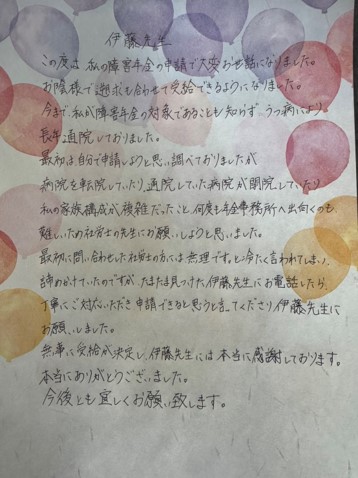 伊藤先生
この度は、私の障害年金の申請で大変お世話になりました。
お陰様で遡求も合わせて受給できるようになりました。
今まで私が障害年金の対象であることも知らず、うつ病により
長年通院しておりました。
最初は自分で申請しようと思い調べておりましたが
病院を転院していたり、通院していた病院が閉院していたり
私の家族構成が複雑だったこと、何度も年金事務所へ出向くのも
難しいため社労士の先生にお願いしようと思いました。
最初に問い合わせた社労士の方には無理です。と冷たく言われてしまい、
諦めかけていたのですが、たまたま見つけた伊藤先生にお電話したら、
丁寧にご対応いただき申請できると思うと言ってくださり伊藤先生に
お願いしました。
無事に受給が決定し、伊藤先生には本当に感謝しております。
本当にありがとうございました。
今後とも宜しくお願い致します。